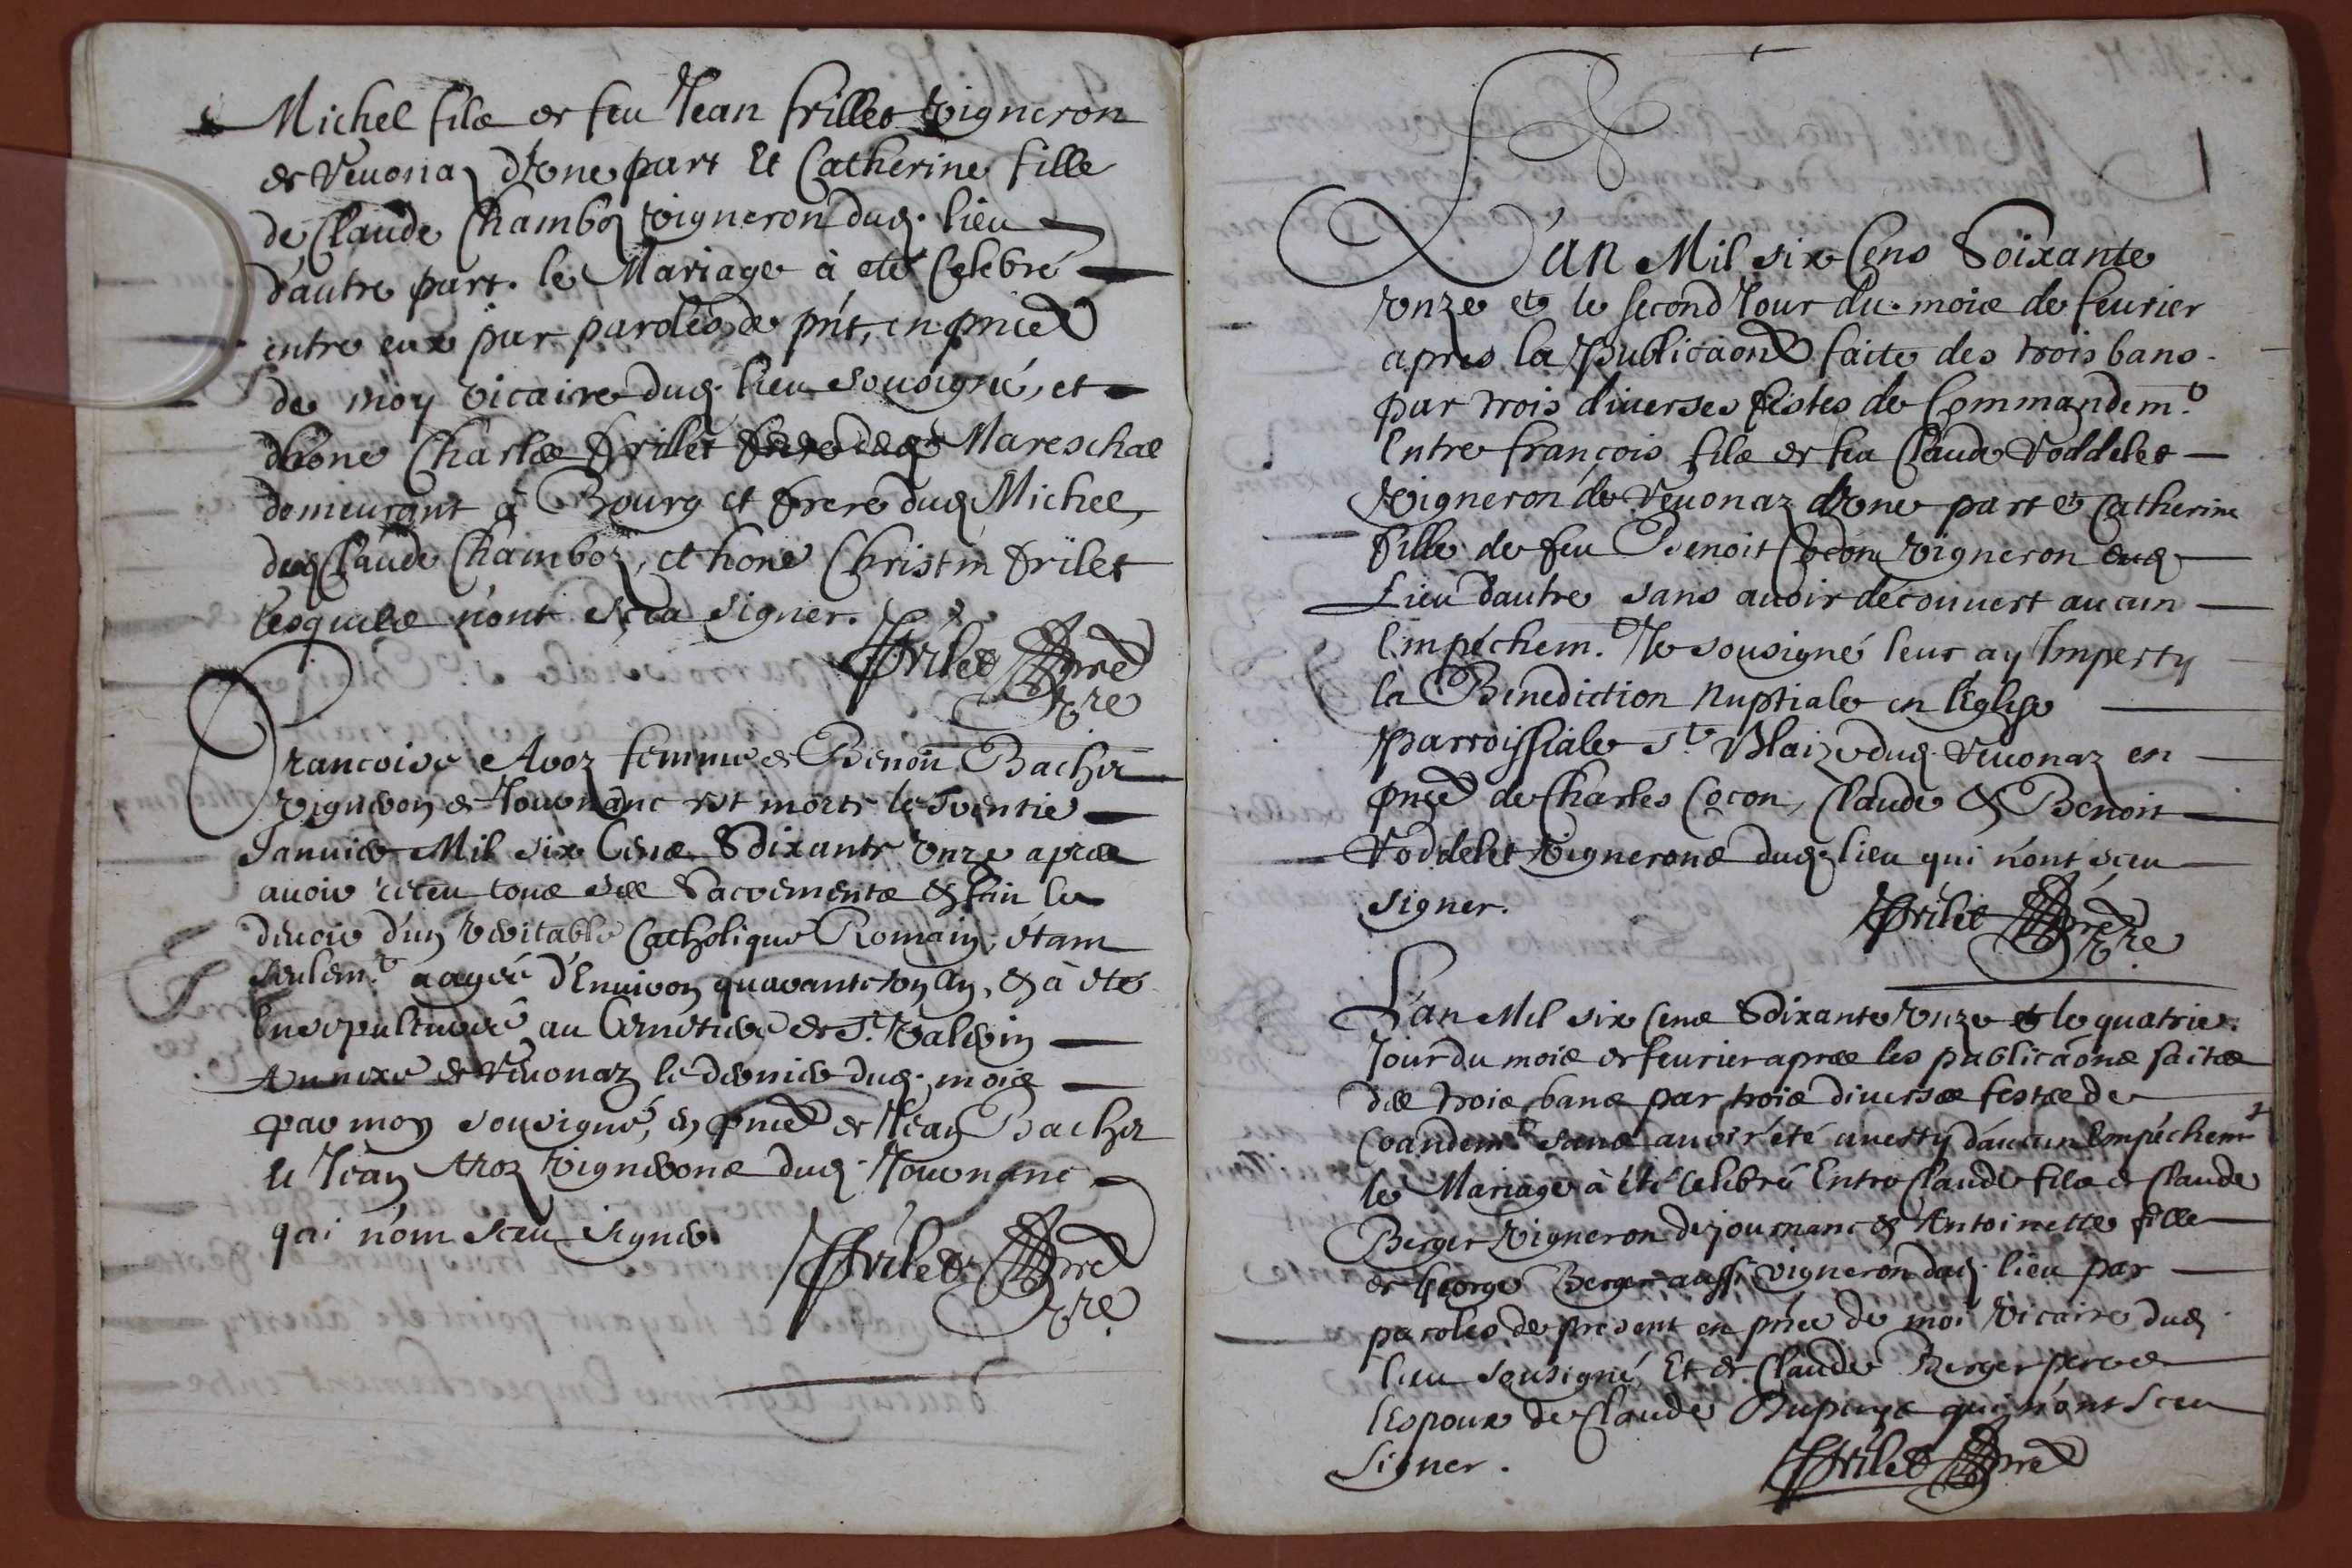 Michel fils de feu Jean frillet vigneron
de Veuonaz d'vne part Et Catherine fille
de Claude Chamboz vigneron dud. lieu
d'autre part. le Mariage à eté Celebré
entre eux par paroles de pnt, en pnce
de moy vicaire dud. lieu sousigné, et
d'hone Charles frillet Mareschal
demeurant à Bourg et frere dud Michel,
dud Claude Chamboz, et hone Christin frilet
lesquels n'ont sceu signer.
frilet pre
vre
Francoise Avoz femme de Benoit Bacher
vigneron de Jouvnanc est morte le trentie
Januier Mil six Cens Soixante vnze apres
auoir receu tous ses Sacrements & fait le
deuoir d'un veritable Catholique Romain, étant
seulemt. aagée d'Enuiron quarante vn an, & à été
Ensepulturée au Cemetiere de St. Valerin
Annexe de Veuonaz le dernier dud. mois
par moy sousigné, en pnce de Jean Bacher
et Jean Avoz vignerons dud. Jouvnanc
qui n'ont sceu signer
frilet pre
vre
L'an Mil six Cens Soixante
vnze et le second Jour du mois de feurier
apres la Publicaon faite des trois bans
par trois diuerses festes de Commandemt.
Entre françois fils de feu Claude Voddelet
vigneron de Veuonaz d'vne part et Catherine
fille de feu Benoit Cocon vigneron dud
Lieu d'autre sans auoir découuert aucun
Empéchemt. Je sousigné leur ay Imperty
la Benediction Nuptiale en l'Eglise
Parroissiale St. Blaize dud. Veuonaz en
pnce de Charles Cocon, Claude & Benoit
Voddelet vignerons dud. lieu qui n'ont sceu
signer.
frilet pre
vre
L'an Mil six Cens Soixante vnze et le quatrie.
Jour du mois de feurier apres les publicaons faites
des trois bans par trois diuerses festes de
Coandemt. sans auoir été auerty d'aucun Empéchemt
le Mariage à été Celebré Entre Claude fils de Claude
Berger vigneron de journanc & Antoinette fille
de George Berger aussi vigneron dud. lieu par
paroles de present en pnce de moi vicaire dud
lieu sousigné Et de Claude Berger pere de
l'Espoux de Claude qui n'ont sceu
signer.
frilet pre